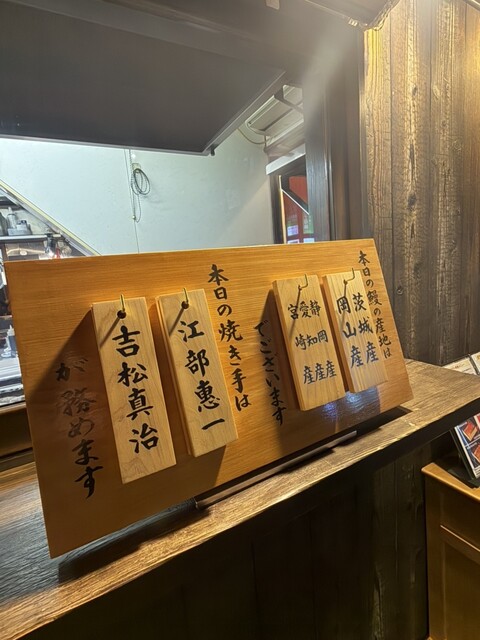 本日の鰻の産地は
茨城産
岡山産
静岡産
愛知産
宮崎産
でございます
本日の焼き手は
江部惠一
吉松真治
が務めます